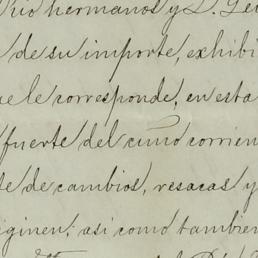 Rio hermanos y D.
de su importe, exhibi
ue le corresponde, en esta
fuerte del cuño corrien
te de cambios, resacas y
iginen, asi como tambien